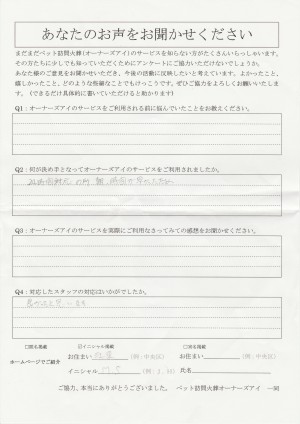 あなたのお声をお聞かせください
まだまだペット訪問火葬(オーナーズアイ)のサービスを知らない方がたくさんいらっしゃいます。
その方たちに少しでも知っていただくためにアンケートにご協力いただけないでしょうか。
あなた様のご意見をお聞かせいただき、今後の活動に反映したいと考えています。よかったこと、
嬉しかったこと、どのような些細なことでもけっこうです。ぜひご協力をよろしくお願いいたしま
す。(できるだけ具体的に書いていただけると助かります)
Q1：オーナーズアイのサービスをご利用される前に悩んでいたことをお教えください。
Q2：何が決め手となってオーナーズアイのサービスをご利用されましたか。
Q3：オーナーズアイのサービスを実際にご利用なさってみての感想をお聞かせください。
Q4：対応したスタッフの対応はいかがでしたか。
□匿名掲載 ☑イニシャル掲載 □実名掲載
ホームページでご紹介
お住まい (例：中央区) お住まい (例：中央区)
イニシャル 氏名
ご協力、本当にありがとうございました。 ペット訪問火葬オーナーズアイ